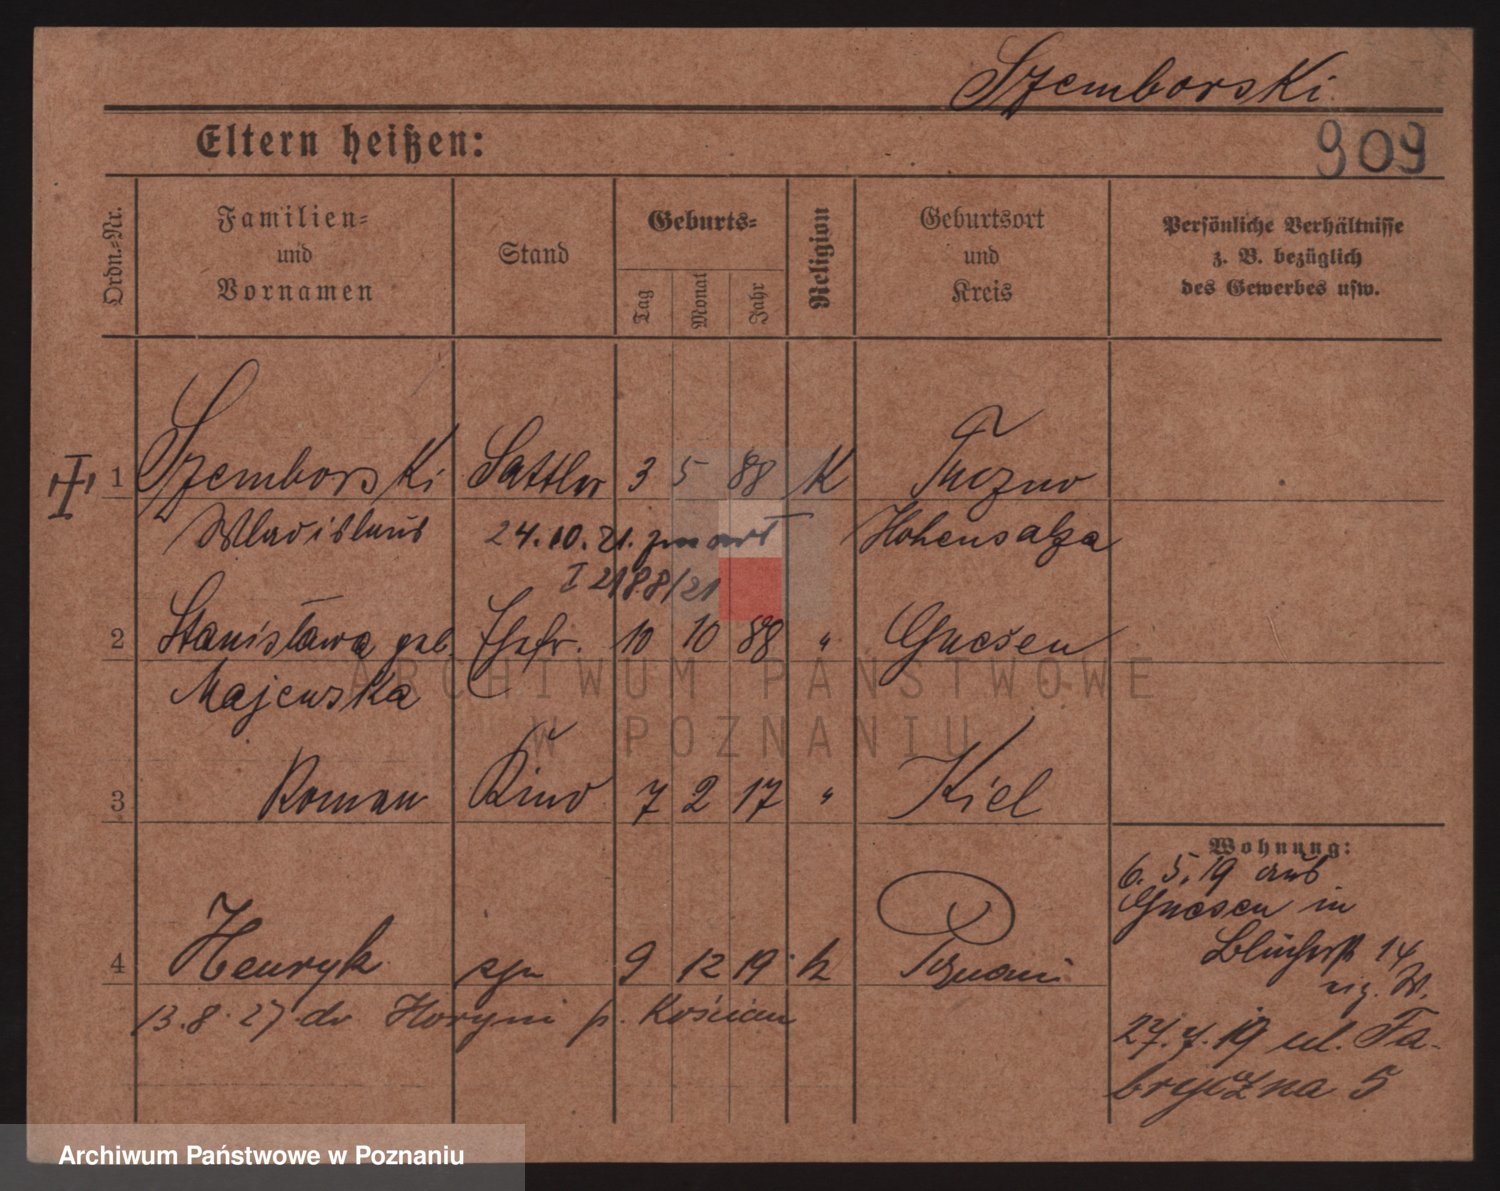 Szemborski
909
Eltern heißen:
Ordn.=Nr.
Familien=
und
Vornamen
Stand
Geburts=
Tag
Monat
Jahr
Religion
Geburtsort
und
Kreis
Persönliche Verhältnisse
z. B. bezüglich
des Gewerbes usw.
1 Szemborski Sattler 3 5 88 K
Wladislaus 24.10.21. zmarł Hohensalza
I 2188/21
2 Stanisława geb. Ehefr. 10 10 88 " Gnesen
Majewska
3 Roman Kind 7 2 17 " Kiel
Wohnung:
6. 5. 19 aus
Gnesen in
Blücherst 14
eig. W.
27. 7. 19 ul. Fa-
bryczna 5
4 Henryk syn 9 12 19 k Poznań
13.8.27 do p. Kościan
ARCHIWUM PAŃSTWOWE
W POZNANIU
Archiwum Państwowe w Poznaniu